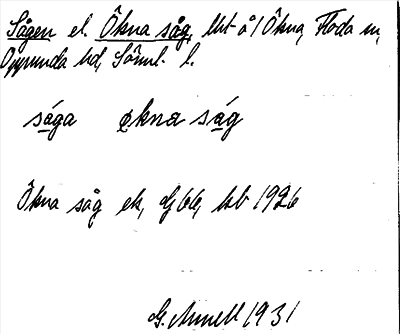 Sågen el. Ökna såg, lht å /Ökna, Floda sn,
Oppunda hd, Söml. l.
såga økna såg
Ökna såg ek, Gj 66, kb 1926
G. Annell 1931